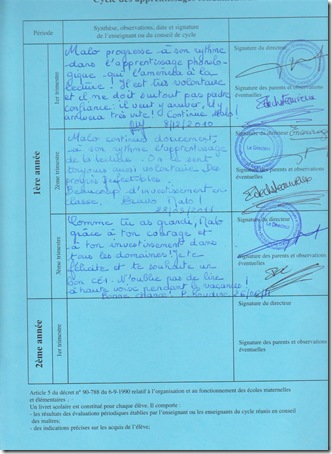 Cycle des apprentissages fondamentaux
Période
Synthèse, observations, date et signature
de l'enseignant ou du conseil de cycle
1ère année
1er trimestre
Malo progresse à son rythme
dans l'apprentissage phonolo-
gique qui l'amènera à la
lecture ! Il est très volontaire
et il ne doit surtout pas perdre
confiance : il veut y arriver, il y
arrivera très vite ! Continue Malo !
2010
Signature du directeur
Signature des parents et observations
éventuelles
2ème trimestre
Malo continue doucement,
à son rythme l'apprentissage
de la lecture. On le sent
toujours aussi volontaire. Des
progrès
Beaucoup d'investissement en
classe. Bravo Malo !
2011
Signature du directeur
Le Directeur
Signature des parents et observations
éventuelles
3ème trimestre
Comme tu as grandi, Malo
grâce à ton courage et
à ton investissement dans
tous les domaines ! Je te
félicite et te souhaite un
bon CE1. N'oublie pas de lire
à haute voix pendant les vacances !
Bonne chance !
Signature du directeur
Signature des parents et observations
éventuelles
2ème année
1er trimestre
Signature du directeur
Signature des parents et observations
éventuelles
Article 5 du décret n° 90-788 du 6-9-1990 relatif à l'organisation et au fonctionnement des écoles maternelles
et élémentaires
Un livret scolaire est constitué pour chaque élève. Il comporte :
- les résultats des évaluations périodiques établies par l'enseignant ou les enseignants du cycle réunis en conseil
des maîtres;
- des indications précises sur les acquis de l'élève;